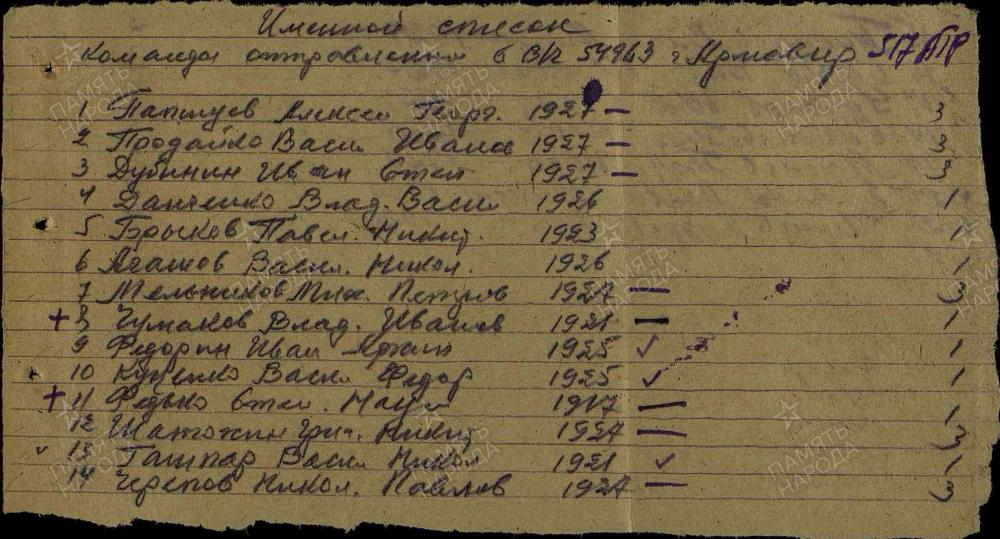 Именной список
Команды отправленной в В/Ч 54963 г Армавир 517 АТР
1 Алексей Георг. 1927 — 3
2 Продайко Васил Иванов 1927 — 3
3 Дубинин Иван Степ 1927 — 3
4 Данченко Влад. Васил 1926 1
5 Брыков Павел. Никит. 1923 1
6 Агашов Васил. Никол. 1926 1
7 Мельников Мих. Петров 1927 — 3
+ 8 Чумаков Влад. Иванов 1921 — 1
9 Федорин Иван 1925 ✓ 1
10 Куценко Васил Федор 1925 ✓ 1
+ 11 Федько Степ. 1917 — 1
12 Шатохин Григ. Никит 1927 — 3
✓ 13 Гашпар Васил Никол 1921 ✓ 1
14 Черепов Никол. Павлов 1927 — 3
ПАМЯТЬ НАРОДА